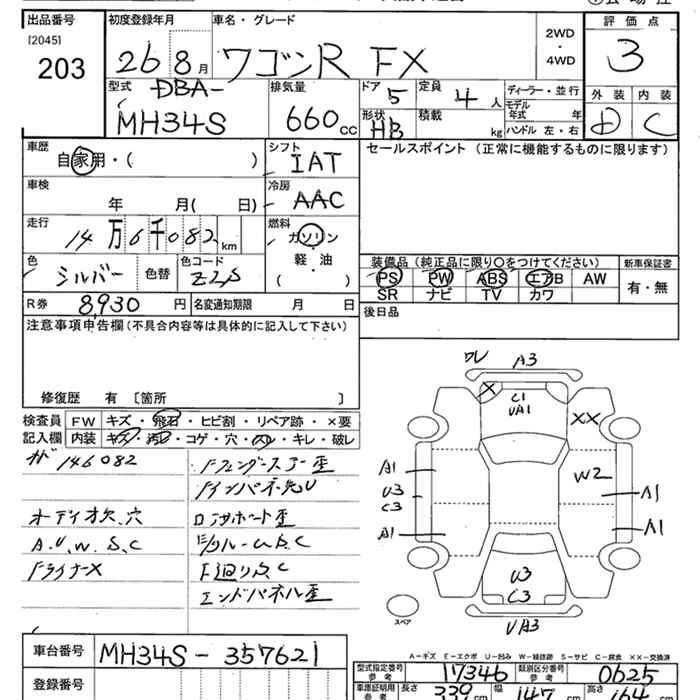 出品番号 初度登録年月 車名・グレード 2WD ・ 4WD 評価点
[2045]
203 26 8月 ワゴンR FX 3
型式 DBA- 排気量 ドア 5 定員 4人 ディーラー・並行 外装 内装
MH34S 660cc 形状 HB 積載 kg モデル年式 年 D C
ハンドル 左・右
車歴 シフト セールスポイント (正常に機能するものに限ります)
自家用・( ) IAT
車検 冷房
年 月( 日) AAC
走行 燃料
14万6千082km ガソリン
色 色コード 軽・油
シルバー 色替 Z2S ( )
装備品(純正品に限り○をつけてください) 新車保証書
PS PW ABS エアB AW 有・無
SR ナビ TV カワ
R券 8,930円 名変通知期限 月 日 後日品
注意事項申告欄(不具合内容等は具体的に記入して下さい)
修復歴 有 〔箇所 〕
検査員 FW キズ・飛石・ヒビ割・リペア跡・×要
記入欄 内装 キズ・汚れ・コゲ・穴・スレ・キレ・破レ
146082
オーディオ欠、穴
A.U.W.S.C
ワレ A3
X C1
UA1
XX
A1
W2
U3 A1
C3
A1 A1
U3
C3
スペア
UA3
A-キズ E-エクボ U-凹み W-補修跡 S-サビ C-腐食 ××-交換済
車台番号 MH34S-357621
登録番号
型式指定番号 参考 17346 類別区分番号 参考 0625
車庫証明用 参考 長さ 339cm 幅 147cm 高さ 164cm